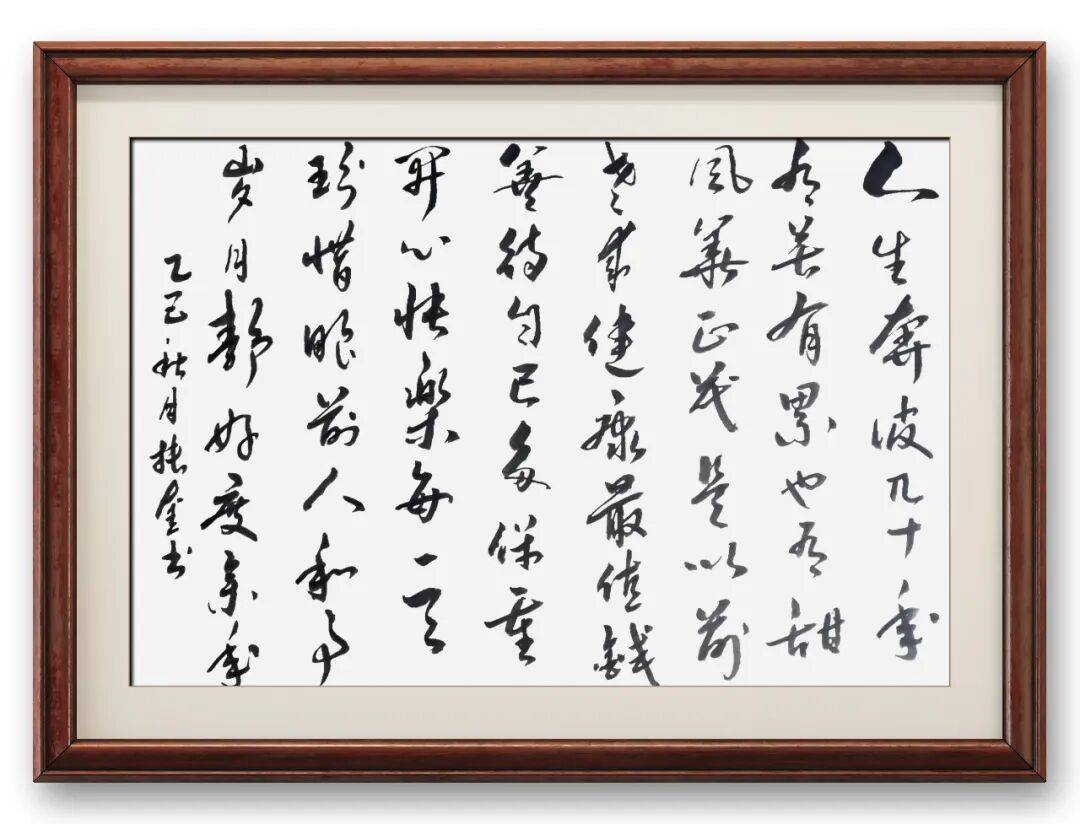 人生奔波几十年
有苦有累也有甜
风华正茂是以前
老来健康最值錢
善待自己多保重
开心快樂每一天
珍惜眼前人和事
岁月静好度余年
乙巳秋月金书